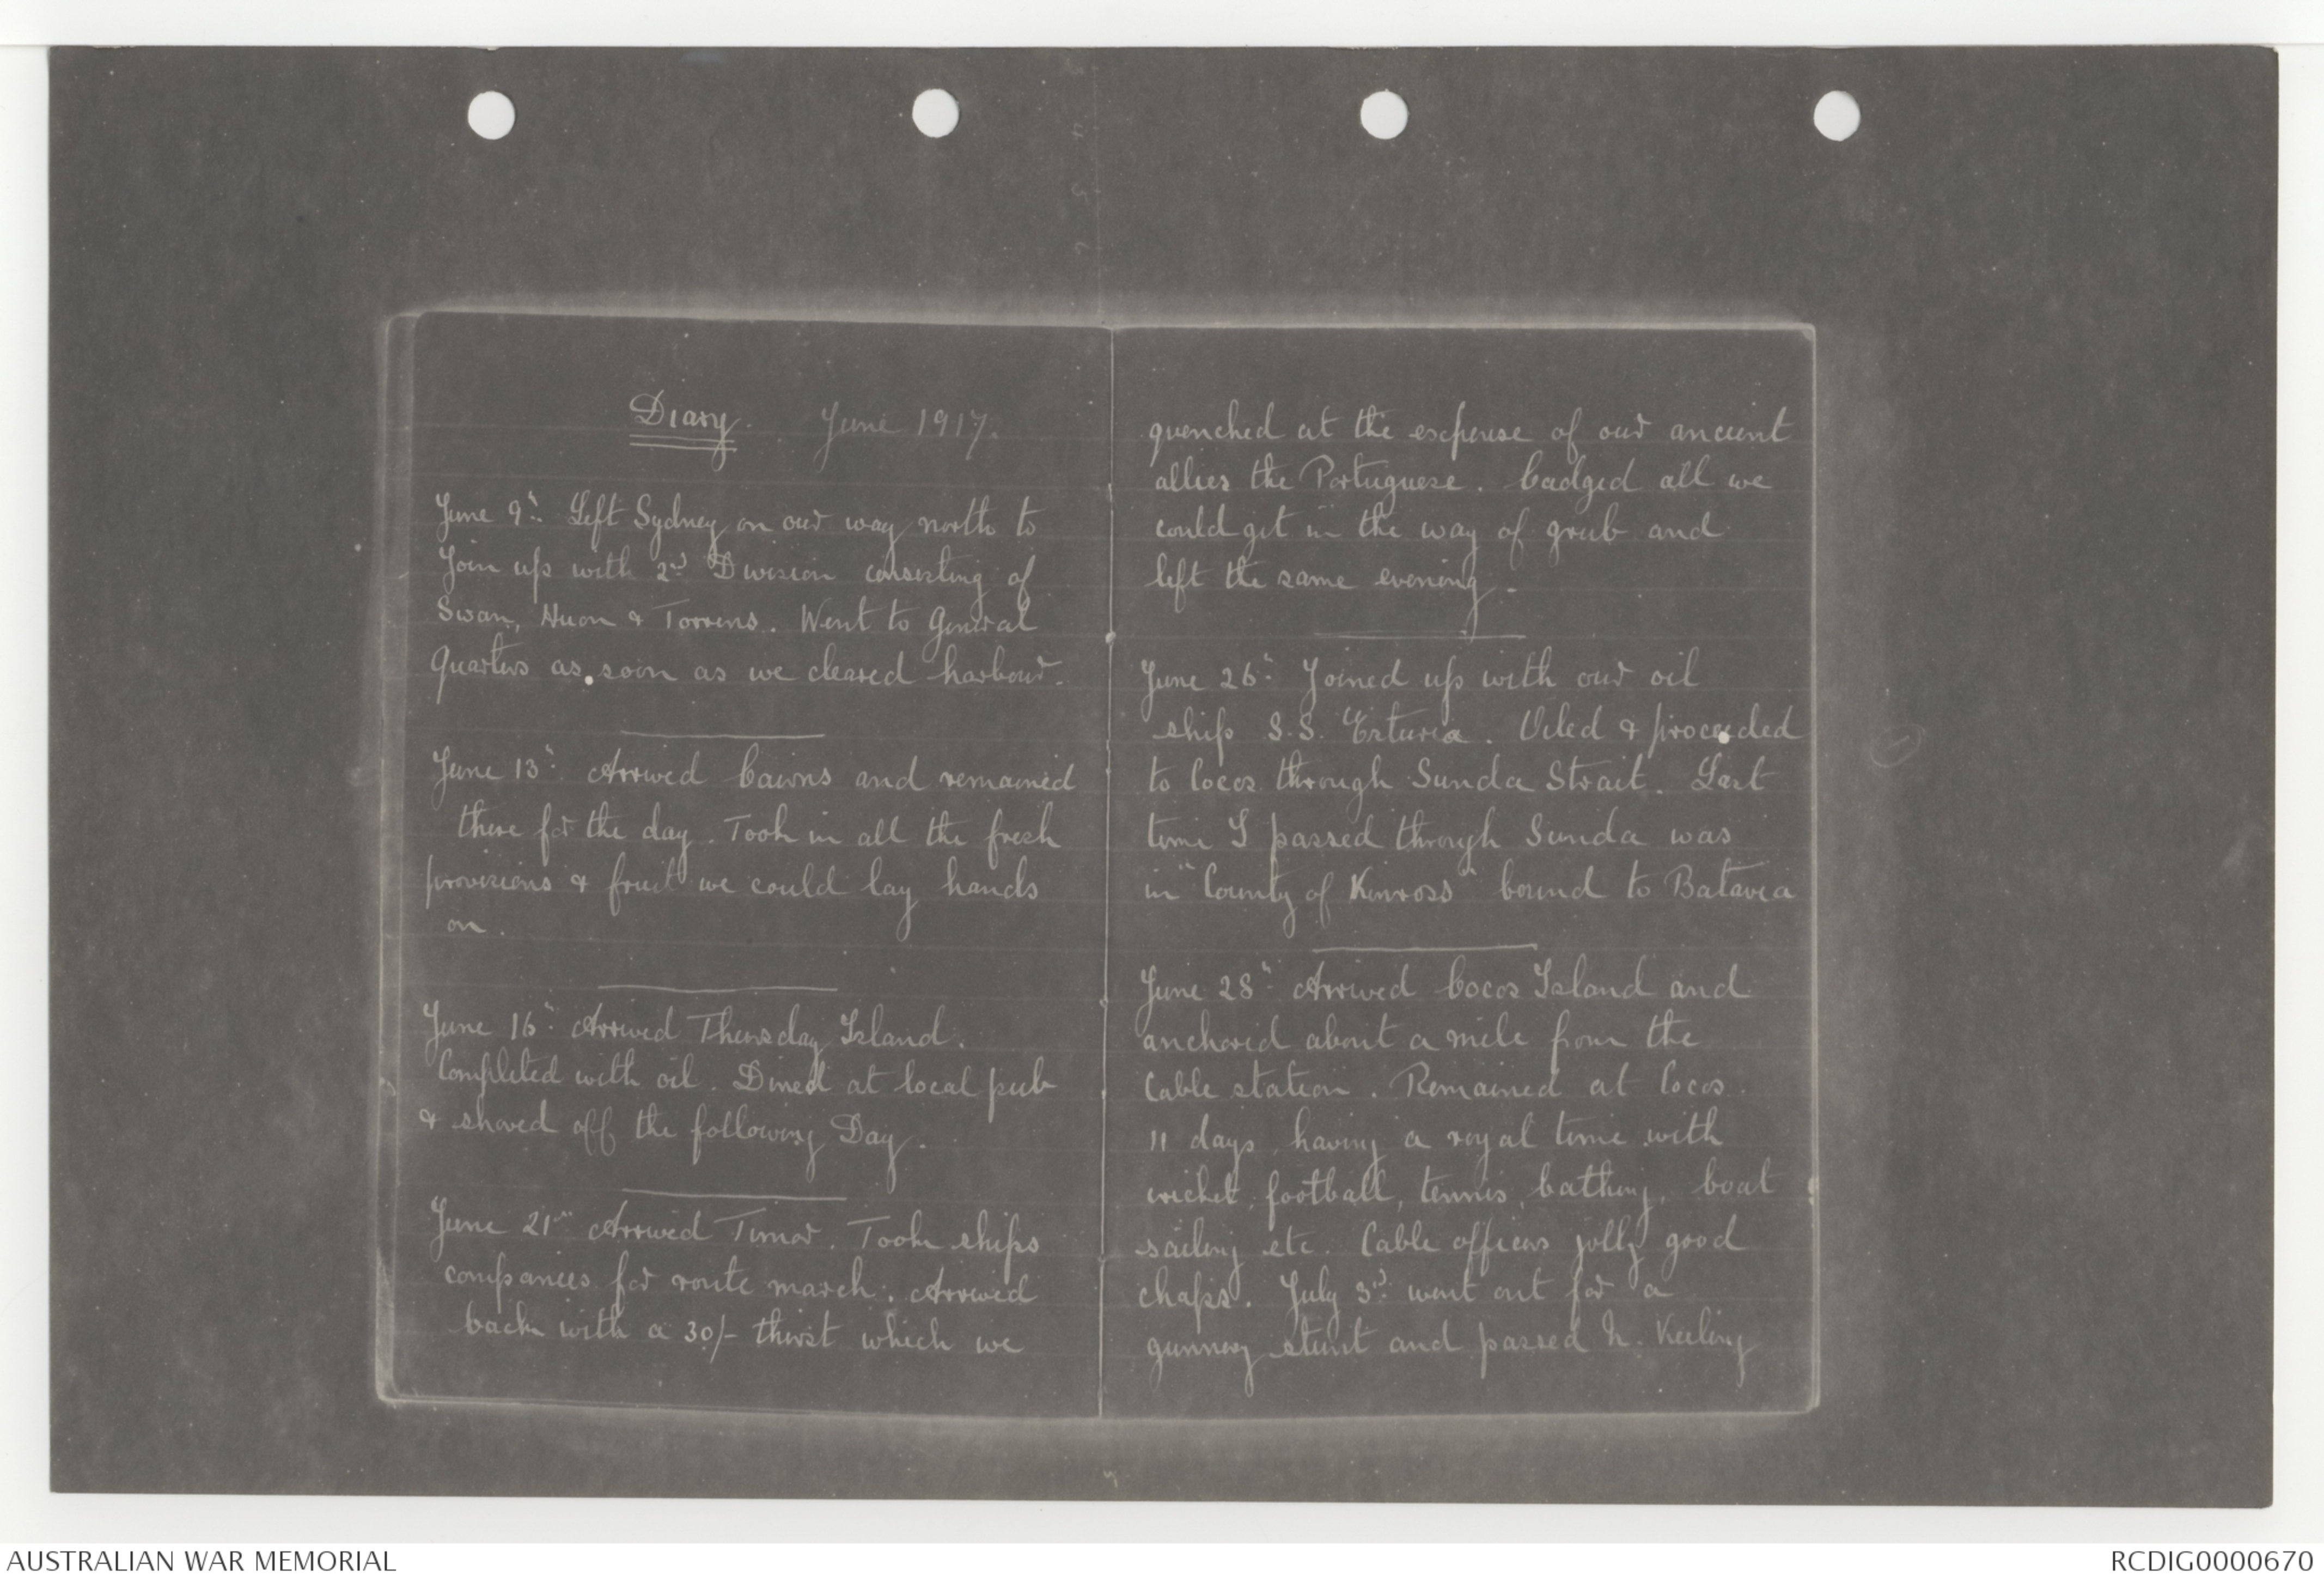 Diary. June 1917.
June 9th. Left Sydney on our way north to
Join up with 2nd Division consisting of
Swan, Huon & Torrens. Went to General
Quarters as soon as we cleared harbour.
June 13th. Arrived Cairns and remained
there for the day. Took in all the fresh
provisions & fruit we could lay hands
on.
June 16th. Arrived Thursday Island.
Completed with oil. Dined at local pub
& shoved off the following Day.
June 21st Arrived Timor. Took ships
companies for route march. Arrived
back with a 30/- thirst which we
quenched at the expense of our ancient
allies the Portuguese. Cadged all we
could get in the way of grub and
left the same evening.
June 26th. Joined up with our oil
ship S.S. "Esturia. Oiled & proceeded
to Cocos through Sunda Strait. Last
time I passed through Sunda was
in "County of Kinross" bound to Batavia
June 28th. Arrived Cocos Island and
anchored about a mile from the
Cable station. Remained at Cocos
11 days, having a royal time with
cricket, football, tennis, bathing, boat
sailing etc. Cable officers jolly good
chaps. July 3rd. went out for a
gunnery stunt and passed N. Keeling
AUSTRALIAN WAR MEMORIAL
RCDIG0000670